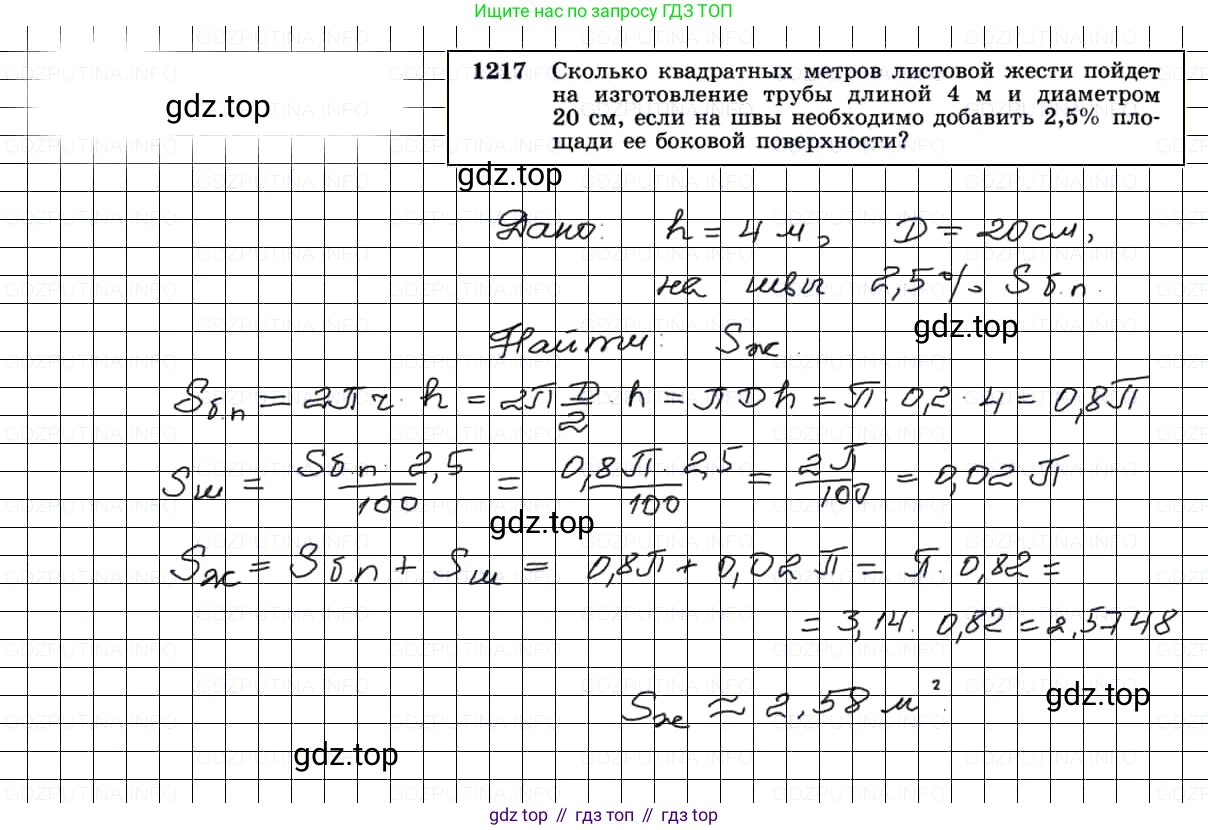 Ищите нас по запросу ГДЗ ТОП
1217 Сколько квадратных метров листовой жести пойдет
на изготовление трубы длиной 4 м и диаметром
20 см, если на швы необходимо добавить 2,5% пло-
щади ее боковой поверхности?
gdz.top
gdz.top
Дано: h = 4 м, D = 20 см,
на швы 2,5% Sб.п.
gdz.top
Найти: Sж.
Sб.п = 2πr · h = 2π D/2 · h = πDh = π · 0,2 · 4 = 0,8π
Sш = Sб.п. · 2,5/100 = 0,8π · 2,5/100 = 2π/100 = 0,02π
gdz.top
Sж = Sб.п + Sш = 0,8π + 0,02π = π · 0,82 =
= 3,14 · 0,82 = 2,5748
Sж ≈ 2,58 м².
gdz.top
gdz.top
gdz top // гдз топ // gdz top